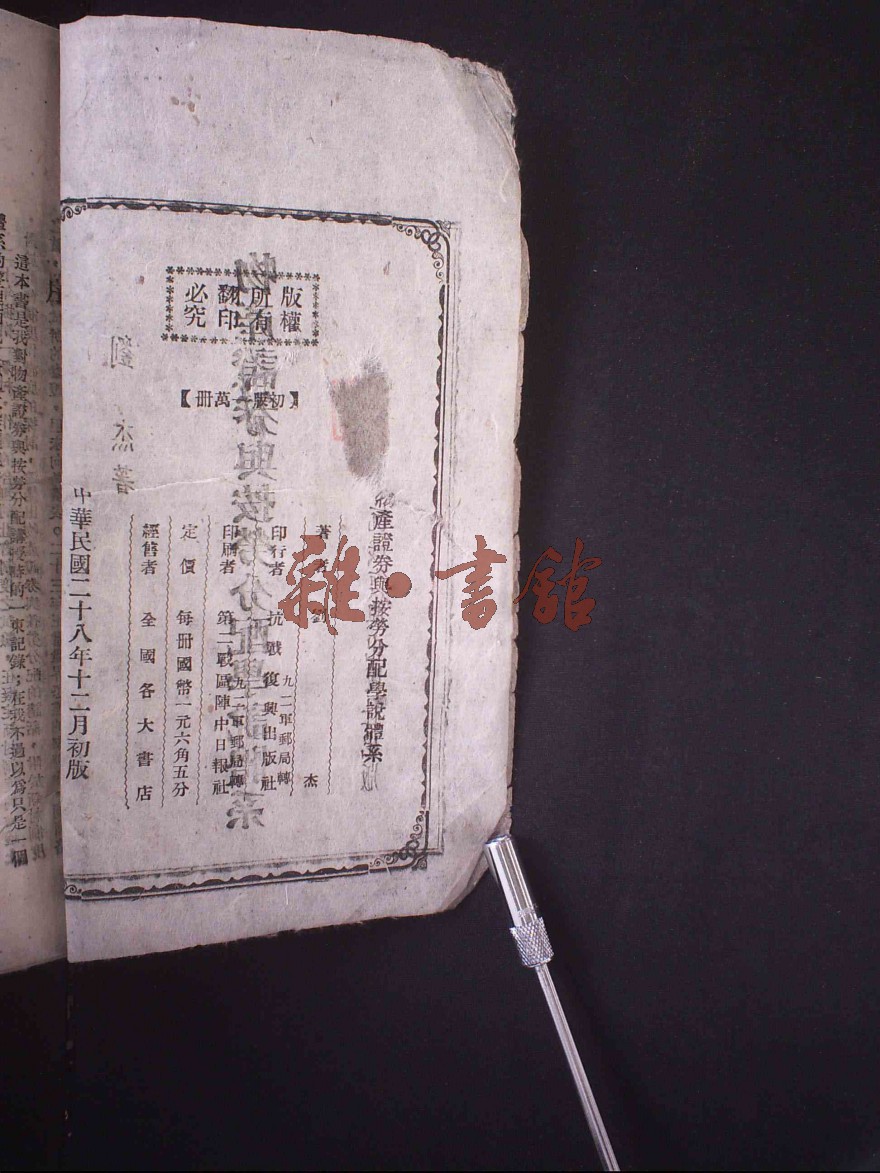 版權所有
翻印必究
【初版一萬冊】
物產證券與按勞分配學說體系
著者 劉杰
印行者 抗戰復興出版社
九二軍郵局轉
印刷者 第二戰區陣中日報社
九二軍郵局轉
定價 每冊國幣一元六角五分
經售者 全國各大書店
中華民國二十八年十二月初版
這本書是我對物產證券與按勞分配講授時的一束記錄；在我不過以為只是一個
雜·書館
物產證券與按勞分配學說體系
劉杰著